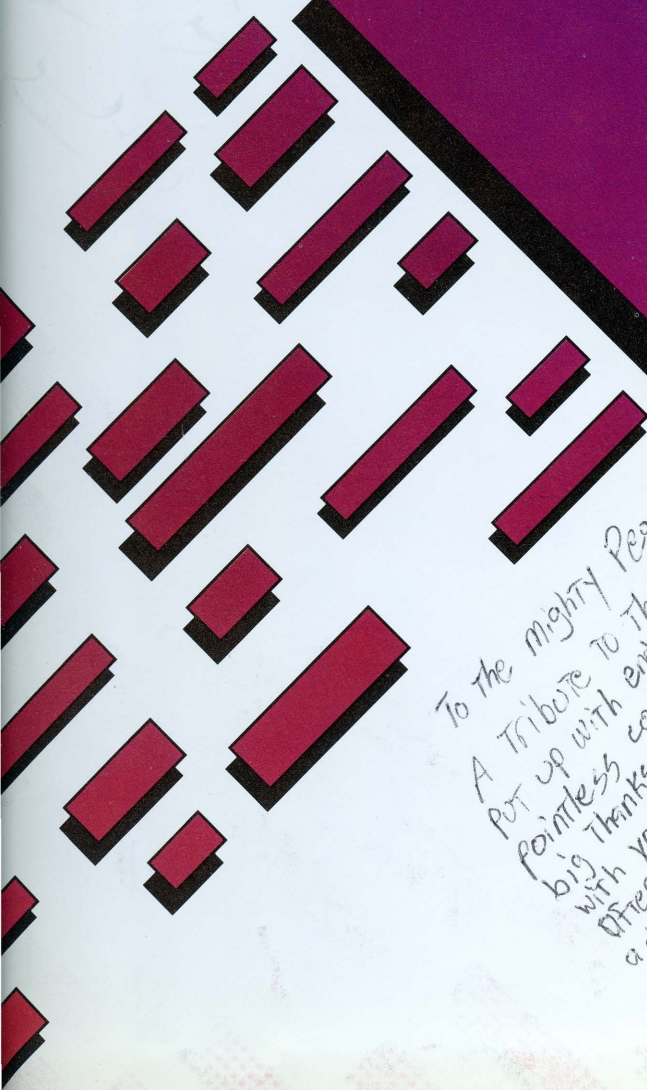 To The Mighty Pea
A Tribute To Th
Put up with en
pointless co
big Thanks
with yo
After
a